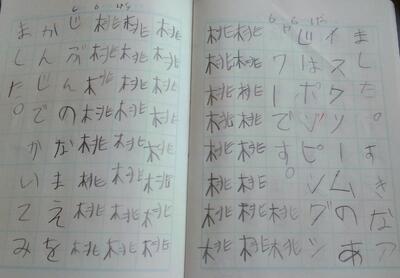 ました。すきなア
イスクリームのあ
じはポッピングシ
ャワーです。桃桃
桃桃桃桃桃桃桃桃
桃桃桃桃桃桃桃桃
桃桃桃桃桃桃桃桃
桃桃桃桃桃桃桃桃
桃桃桃桃桃桃桃桃
じぶんのなまえを
かんじでかいてみ
ました。